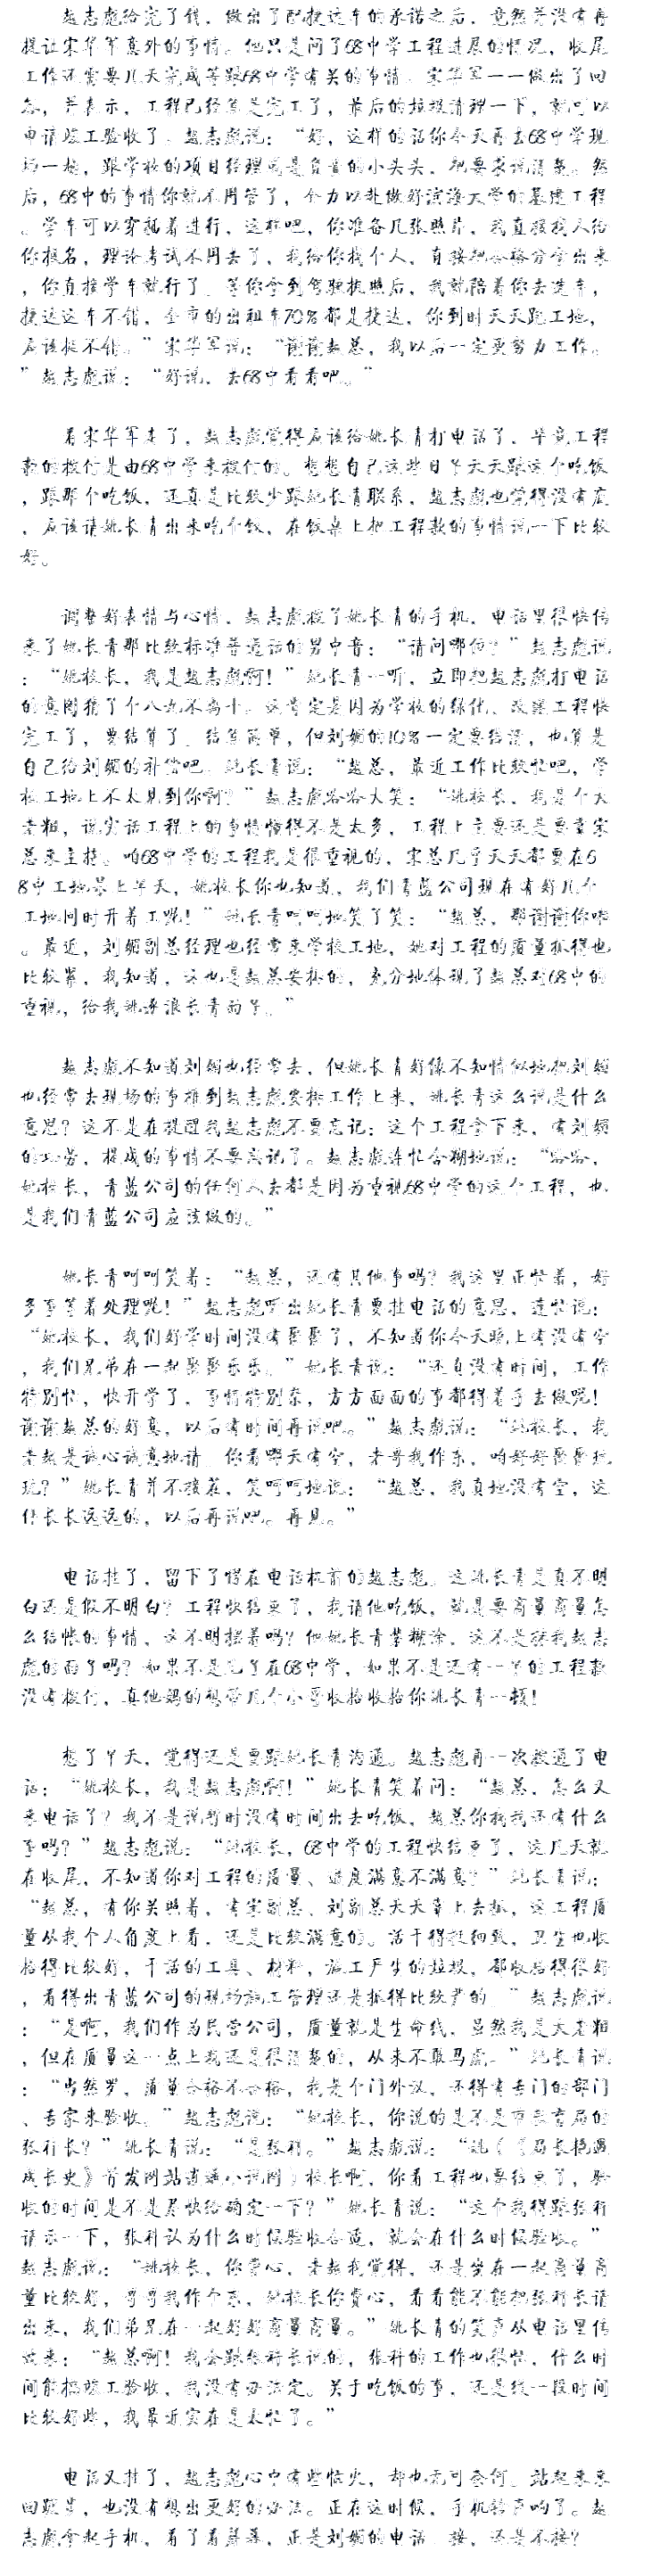 赵志彪给完了钱，做出了配捷达车的承诺之后，竟然并没有再
提让宋华军意外的事情。他只是问了68中学工程进展的情况，收尾
工作还需要几天完成等跟68中学有关的事情。宋华军一一做出了回
答，并表示，工程已经算是完工了，最后的垃圾清理一下，就可以
申请竣工验收了。赵志彪说：“好，这样的话你今天再去68中学现
场一趟，跟学校的项目经理或是负责的小头头，把要求说清楚。然
后，68中的事情你就不用管了，全力以赴做好滨海大学的基建工程
。学车可以穿插着进行，这样吧，你准备几张照片，我直接找人给
你报名，理论考试不用去了，我给你找个人，直接把合格分拿出来
，你直接学车就行了。等你拿到驾驶执照后，我就陪着你去选车，
捷达这车不错，全市的出租车70%都是捷达，你到时天天跑工地，
应该挺不错。”宋华军说：“谢谢赵总，我以后一定更努力工作。
”赵志彪说：“好说，去68中看看吧。”
看宋华军走了，赵志彪觉得应该给姚长青打电话了，毕竟工程
款的拨付是由68中学来拨付的。想想自己这些日子天天跟这个吃饭
，跟那个吃饭，还真是比较少跟姚长青联系，赵志彪也觉得没有底
，应该请姚长青出来吃个饭，在饭桌上把工程款的事情说一下比较
好。
调整好表情与心情，赵志彪拨了姚长青的手机，电话里很快传
来了姚长青那比较标准普通话的男中音：“请问哪位？”赵志彪说
：“姚校长，我是赵志彪啊！”姚长青一听，立即把赵志彪打电话
的意图猜了个八九不离十。这肯定是因为学校的绿化、改操工程快
完工了，要结算了。结算简单，但刘娟的10%一定要结清，也算是
自己给刘娟的补偿吧。姚长青说：“赵总，最近工作比较忙吧，学
校工地上不太见到你啊？”赵志彪哈哈大笑：“姚校长，我是个大
老粗，说实话工程上的事情懂得不是太多，工程上主要还是要靠宋
总来主持。咱68中学的工程我是很重视的，宋总几乎天天都要在6
8中工地呆上半天，姚校长你也知道，我们青蓝公司现在有好几个
工地同时开着工呢！”姚长青呵呵地笑了笑：“赵总，那谢谢你啦
。最近，刘娟副总经理也经常来学校工地，她对工程的质量抓得也
比较紧，我知道，这也是赵总安排的，充分地体现了赵总对68中的
重视，给我姚逐浪长青面子。”
赵志彪不知道刘娟也经常去，但姚长青好像不知情似地把刘娟
也经常去现场的事推到赵志彪安排工作上来，姚长青这么说是什么
意思？这不是在提醒我赵志彪不要忘记：这个工程拿下来，有刘娟
的功劳，提成的事情不要忘记了。赵志彪连忙含糊地说：“哈哈，
姚校长，青蓝公司的任何人去都是因为重视68中学的这个工程，也
是我们青蓝公司应该做的。”
姚长青呵呵笑着：“赵总，还有其他事吗？我这里正忙着，好
多事等着处理呢！”赵志彪听出姚长青要挂电话的意思，连忙说：
“姚校长，我们好学时间没有聚聚了，不知道你今天晚上有没有空
，我们兄弟在一起聚聚乐乐。”姚长青说：“还真没有时间，工作
特别忙，快开学了，事情特别杂，方方面面的事都得着手去做呢！
谢谢赵总的好意，以后有时间再说吧。”赵志彪说：“姚校长，我
老赵是诚心诚意地请，你看哪天有空，老哥我作东，咱好好聚聚玩
玩？”姚长青并不接茬，笑呵呵地说：“赵总，我真地没有空，这
件长长远远的，以后再说吧。再见。”
电话挂了，留下了愣在电话机前的赵志彪。这姚长青是真不明
白还是假不明白？工程快结束了，我请他吃饭，就是要商量商量怎
么结帐的事情，这不明摆着吗？他姚长青装糊涂，这不是驳我赵志
彪的面子吗？如果不是儿子在68中学，如果不是还有一半的工程款
没有拨付，真他妈的想带几个小哥收拾收拾你姚长青一顿！
想了半天，觉得还是要跟姚长青沟通。赵志彪再一次拨通了电
话：“姚校长，我是赵志彪啊！”姚长青笑着问：“赵总，怎么又
来电话了？我不是说暂时没有时间出去吃饭，赵总你找我还有什么
事吗？”赵志彪说：“姚校长，68中学的工程快结束了，这几天就
在收尾，不知道你对工程的质量、进度满意不满意？”姚长青说：
“赵总，有你关照着，有宋副总、刘副总天天靠上去抓，这工程质
量从我个人角度上看，还是比较满意的。活干得挺细致，卫生也收
拾得比较好，干活的工具、材料，施工产生的垃圾，都收拾得很好
，看得出青蓝公司的现场施工管理还是抓得比较严的。”赵志彪说
：“是啊，我们作为民营公司，质量就是生命线，虽然我是大老粗
，但在质量这一点上我还是很清楚的，从来不敢马虎。”姚长青说
：“当然罗，质量合格不合格，我是个门外汉，还得有专门的部门
、专家来验收。”赵志彪说：“姚校长，你说的是不是市教育局的
张科长？”姚长青说：“是张科。”赵志彪说：“姚（《局长艳遇
成长史》首发网站逍遥小说网）校长啊，你看工程也要结束了，验
收的时间是不是尽快给确定一下？”姚长青说：“这个我得跟张科
请示一下，张科认为什么时候验收合适，就会在什么时候验收。”
赵志彪说：“姚校长，你费心，老赵我觉得，还是坐在一起商量商
量比较好，哥哥我作个东，姚校长你费心，看看能不能把张科长请
出来，我们弟兄在一起好好商量商量。”姚长青的笑声从电话里传
过来：“赵总啊！我会跟张科长说的，张科的工作也很忙，什么时
间能搞竣工验收，我没有办法定。关于吃饭的事，还是缓一段时间
比较好些，我最近实在是太忙了。”
电话又挂了，赵志彪心中有些恼火，却也无可奈何。站起来来
回踱步，也没有想出更好的办法。正在这时候，手机铃声响了。赵
志彪拿起手机，看了看屏幕，正是刘娟的电话。接，还是不接？